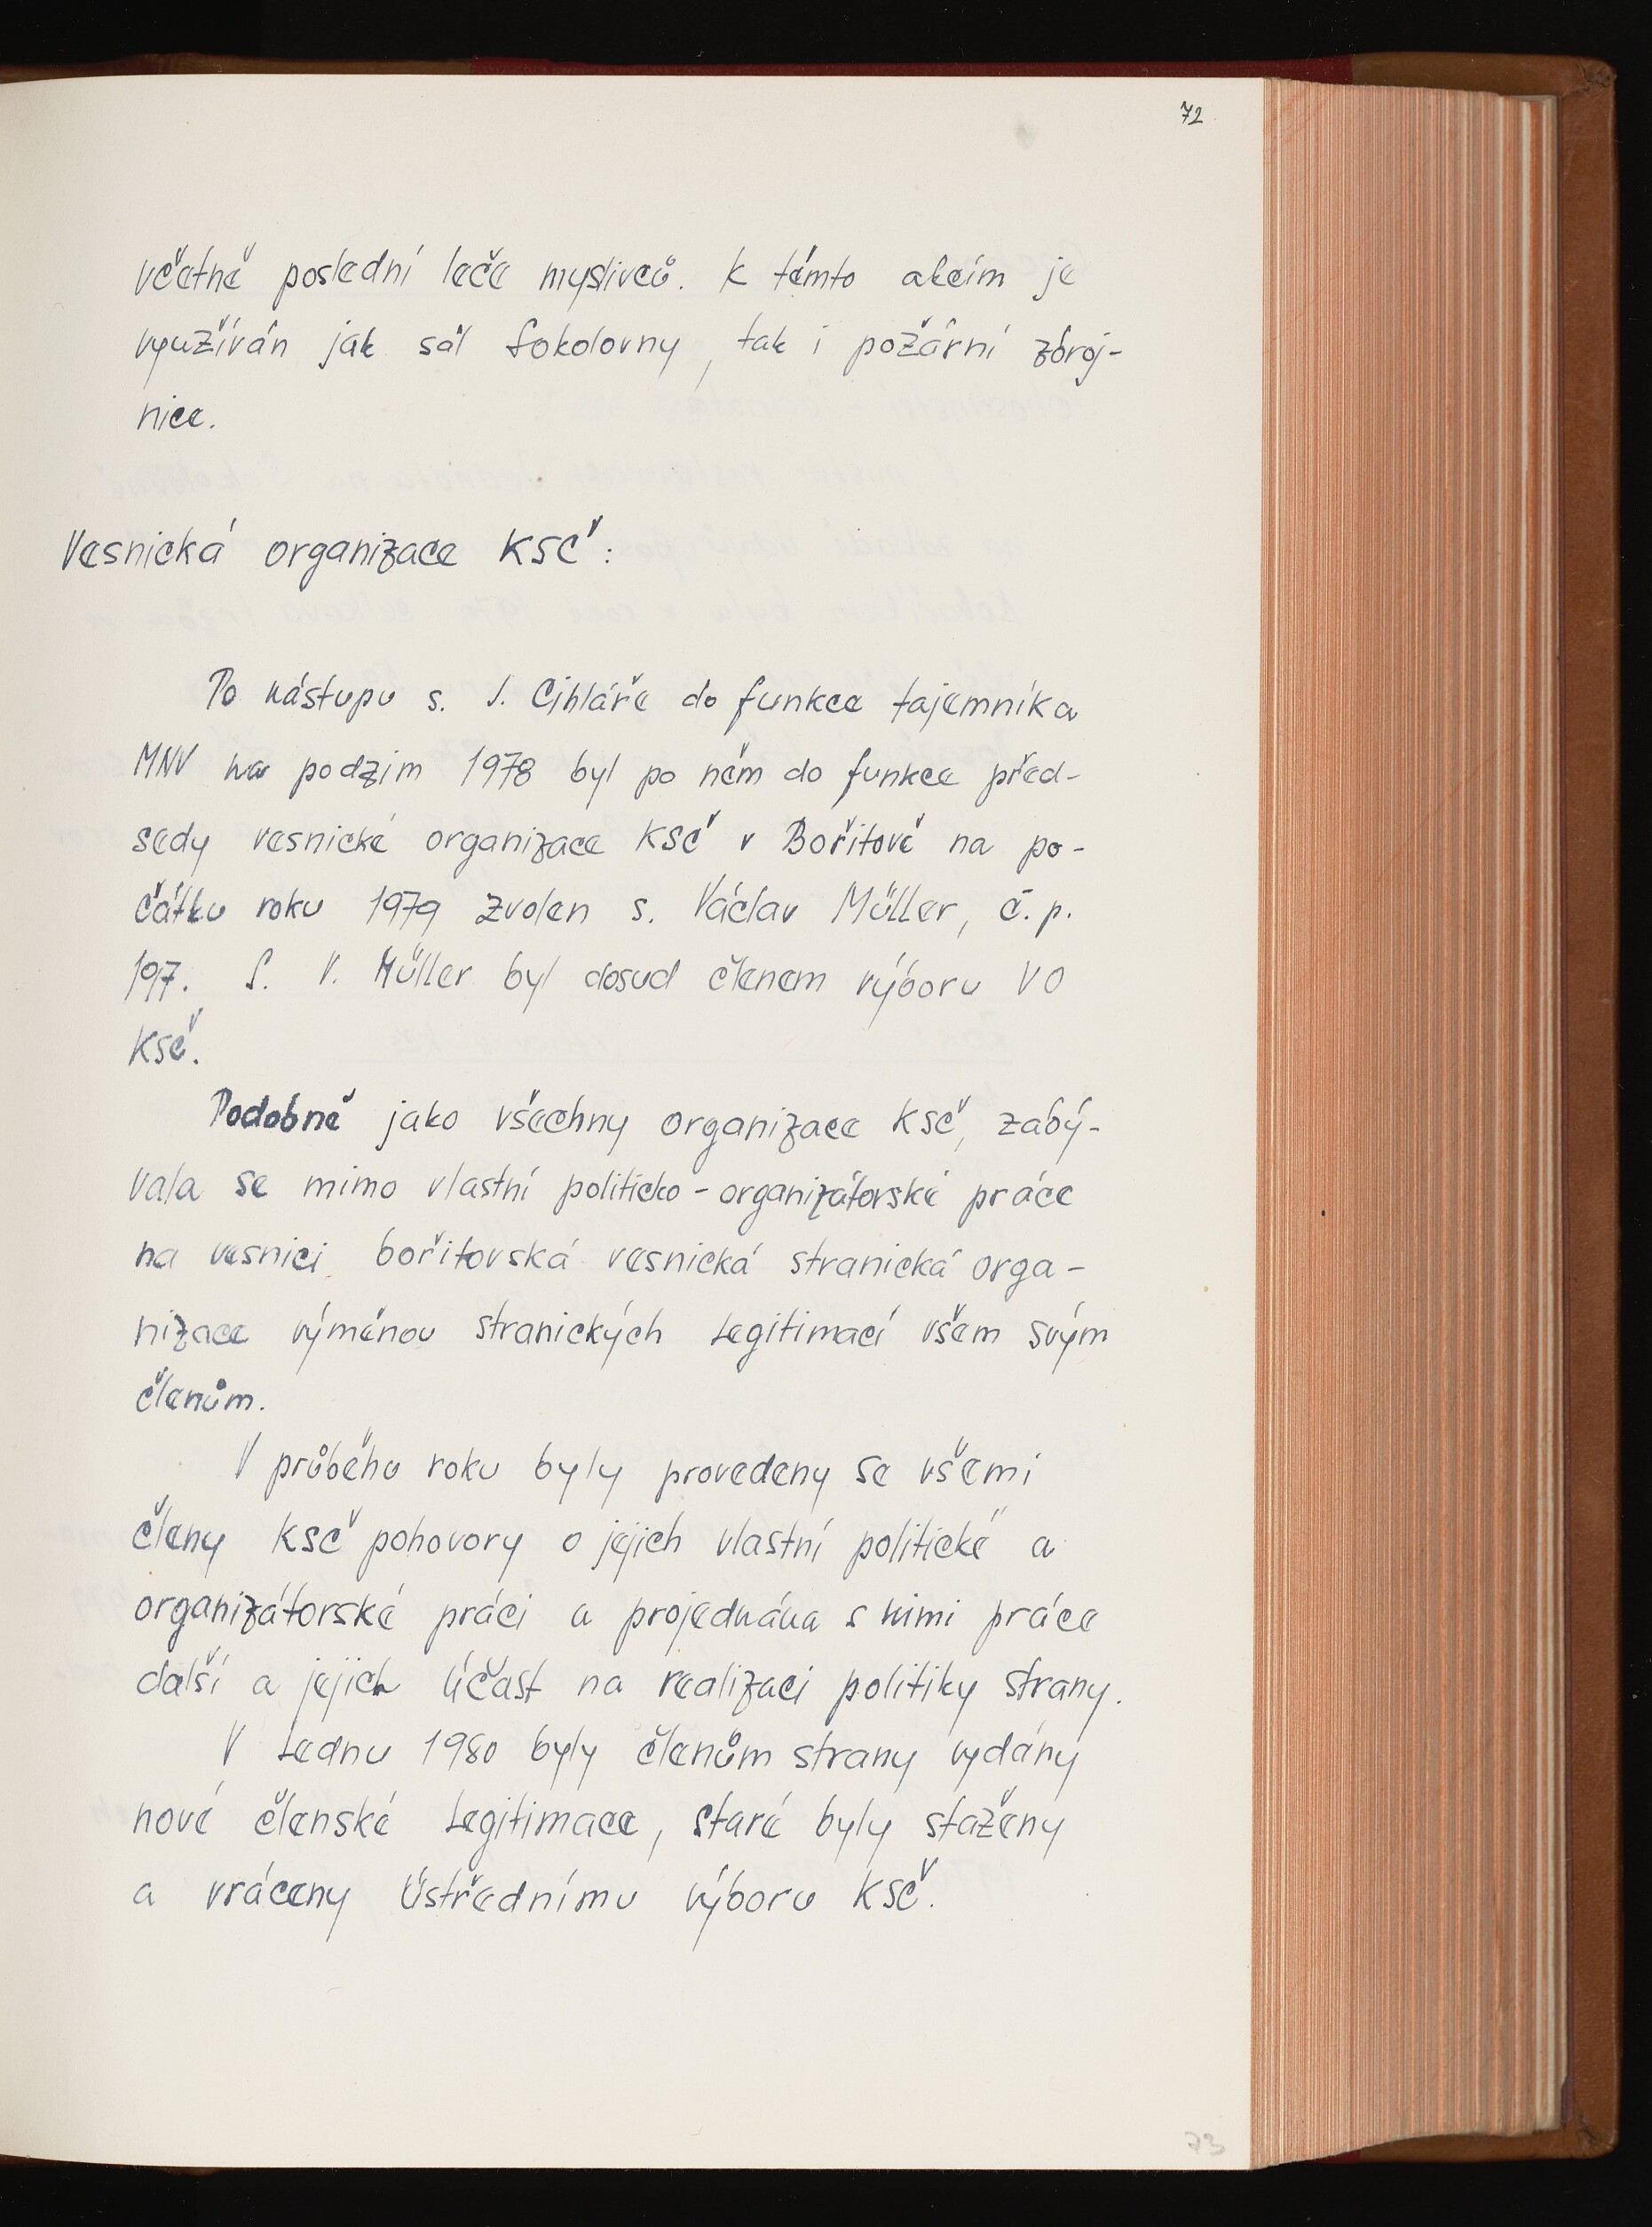 72
včetně poslední leče myslivců. K těmto akcím je
využíván jak sál Sokolovny, tak i požární zbroj-
nice.
Vesnická organizace KSČ:
Po nástupu s. J. Cihláře do funkce tajemníka
MNV na podzim 1978 byl po něm do funkce před-
sedy vesnické organizace KSČ v Bořitově na po-
čátku roku 1979 zvolen s. Václav Müller, č. p.
197. S. V. Müller byl dosud členem výboru VO
KSČ.
Podobně jako všechny organizace KSČ, zabý-
vala se mimo vlastní politicko-organizátorské práce
na vesnici bořitovská vesnická stranická orga-
nizace výměnou stranických legitimací všem svým
členům.
V průběhu roku byly provedeny se všemi
členy KSČ pohovory o jejich vlastní politické a
organizátorské práci a projednána s nimi práce
další a jejich účast na realizaci politiky strany.
V lednu 1980 byly členům strany vydány
nové členské legitimace, staré byly staženy
a vráceny Ústřednímu výboru KSČ.
73